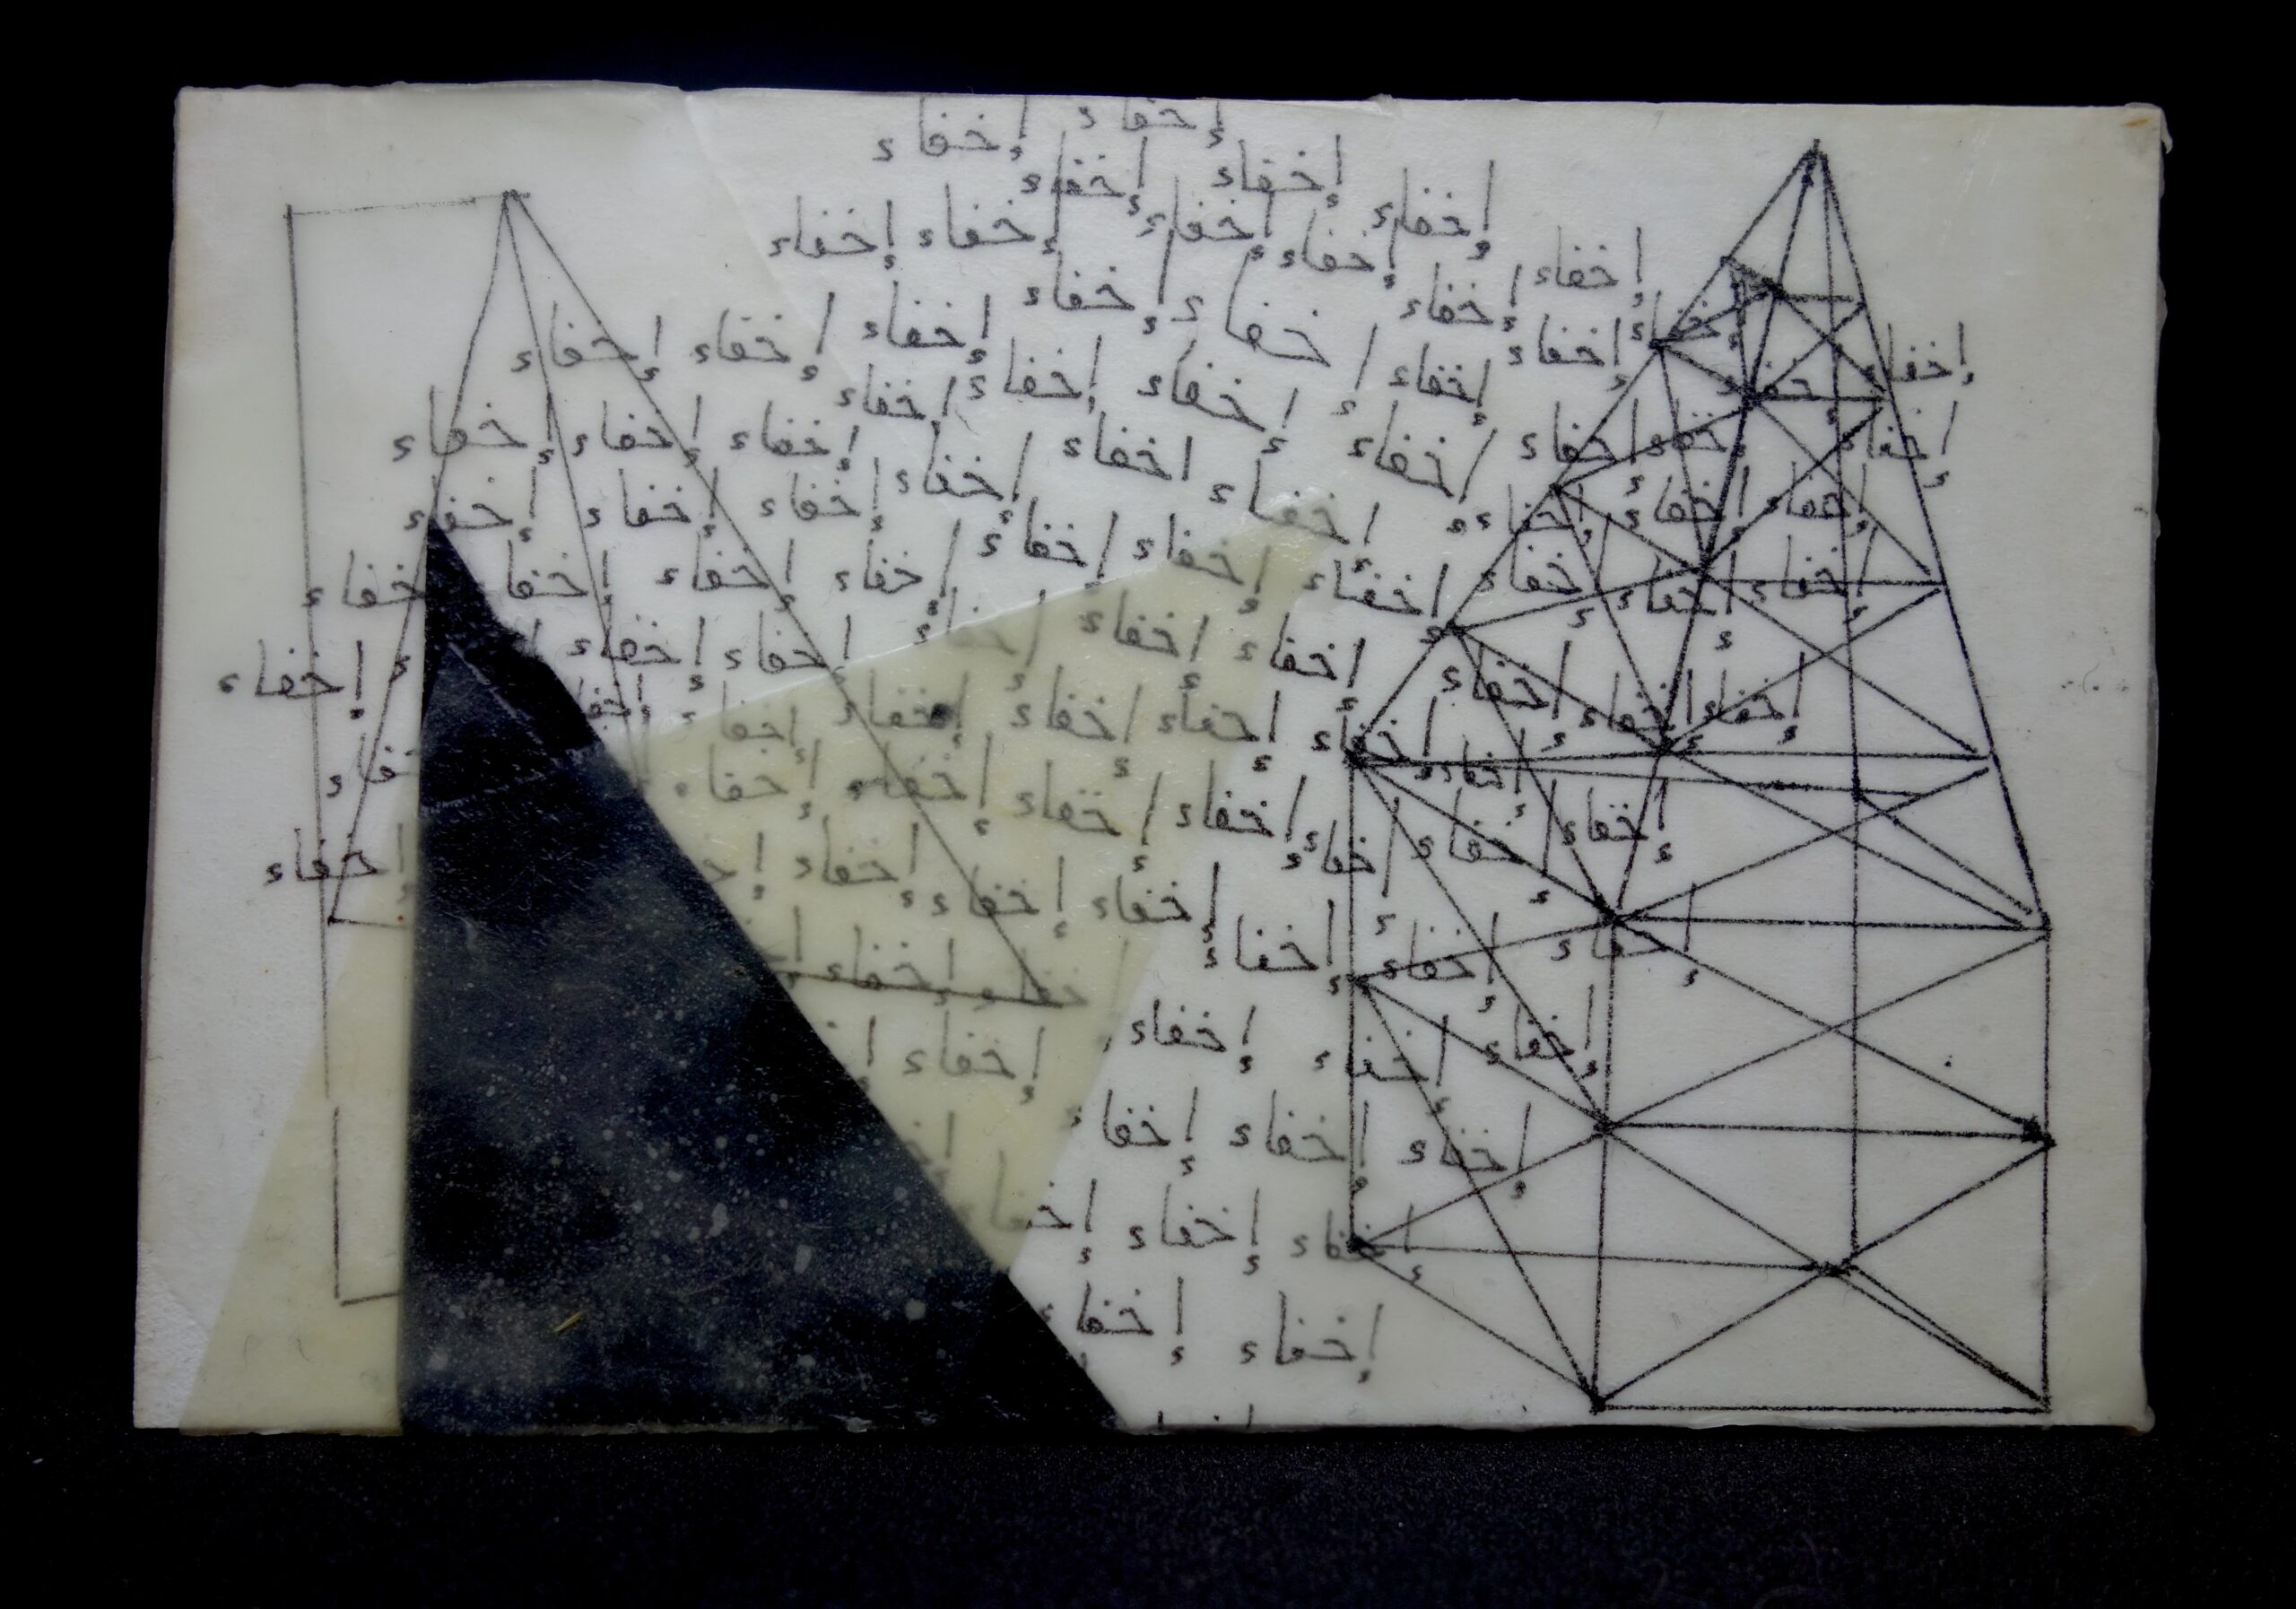 إخفاء إخفاء
إخفاء إخفاء
إخفاء إخفاء إخفاء إخفاء
إخفاء إخفاء
إخفاء إخفاء
إخفاء إخفاء إخفاء إخفاء إخفاء إخفاء
إخفاء إخفاء إخفاء إخفاء إخفاء إخفاء
إخفاء إخفاء إخفاء إخفاء اخفاء إخفاء إخفاء إخفاء
إخفاء إخفاء إخفاء إخفاء إخفاء إخفاء إخفاء إخفاء
إخفاء إخفاء إخفاء إخفاء إخفاء إخفاء إخفاء إخفاء إخفاء خفاء
إخفاء إخفاء إخفاء إخفاء إخفاء إخفاء إخفاء إخفاء إخفاء
إخفاء إخفاء إخفاء إخفاء إخفاء
إخفاء إخفاء إخفاء إخفاء إخفاء إخفاء
إخفاء إخفاء إخفاء إخفاء
إخفاء إخفاء
إخفاء إخفاء إخفاء إخفاء
إخفاء إخفاء إخفاء إخفاء
إخفاء إخفاء إخفاء
إخفاء إخفاء
إخفاء إخفاء